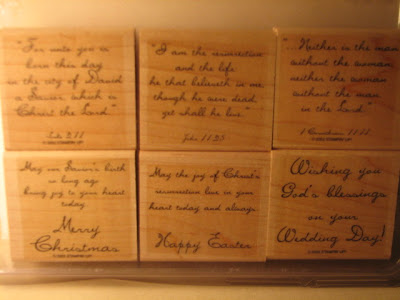 "For unto you is
born this day
in the city of David
a Saviour, which is
Christ the Lord."
Luke 2:11
© 2003 STAMPIN' UP!
"I am the resurrection
and the life:
he that believeth in me,
though he were dead,
yet shall he live."
John 11:25
"...Neither is the man
without the woman,
neither the woman
without the man,
in the Lord."
1 Corinthians 11:11
© 2003 STAMPIN' UP!
May our Saviour's birth
so long ago
bring joy to your heart
today.
Merry
Christmas
© 2003 STAMPIN' UP!
May the joy of Christ's
resurrection live in your
heart today and always.
Happy Easter
© 2003 STAMPIN' UP!
Wishing you
God's blessings
on your
Wedding Day!
© 2003 STAMPIN' UP!